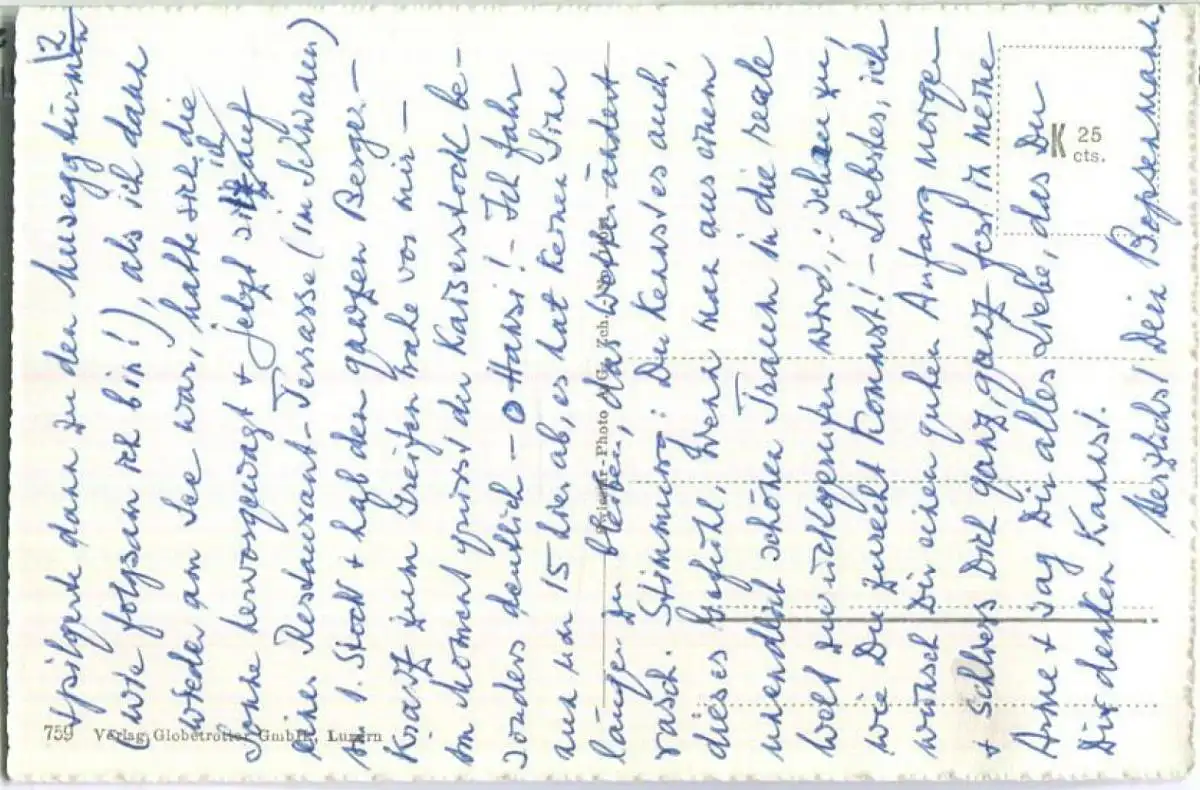 12
spilgerte dann zu den Musegg türmen
(wie folgsam ich bin!), als ich dann
wieder am See war, hatte sich die
Sonne hervorgewagt + jetzt sitz ich auf
einer Restaurant-Terrasse (im Schwanen)
im 1. Stock + hab den ganzen Berger-
Kranz zum Greifen nahe vor mir –
im Moment grüsst der Kaiserstock be-
sonders deutlich – o Hansi! – Ich fahr
nun um 15 hier ab, es hat keinen Sinn
länger zu bleiben, das ändert
rasch. Stimmung: Du kennst es auch,
dieses Gefühl, wenn man aus einem
unendlich schönen Traum in die reale
Welt zurückgerufen wird,: schau zu,
wie Du zurecht kommst! – Liebstes, ich
wünsch Dir einen guten Anfang morgen
+ schliess Dich ganz, ganz fest in meine
Arme + sag Dir alles Liebe, das Du
Dir denken kannst.
Herzlichst Dein Bopsenmann.
K 25
cts.
759 Verlag Globetrotter GmbH., Luzern
-Photo AG. Zch.